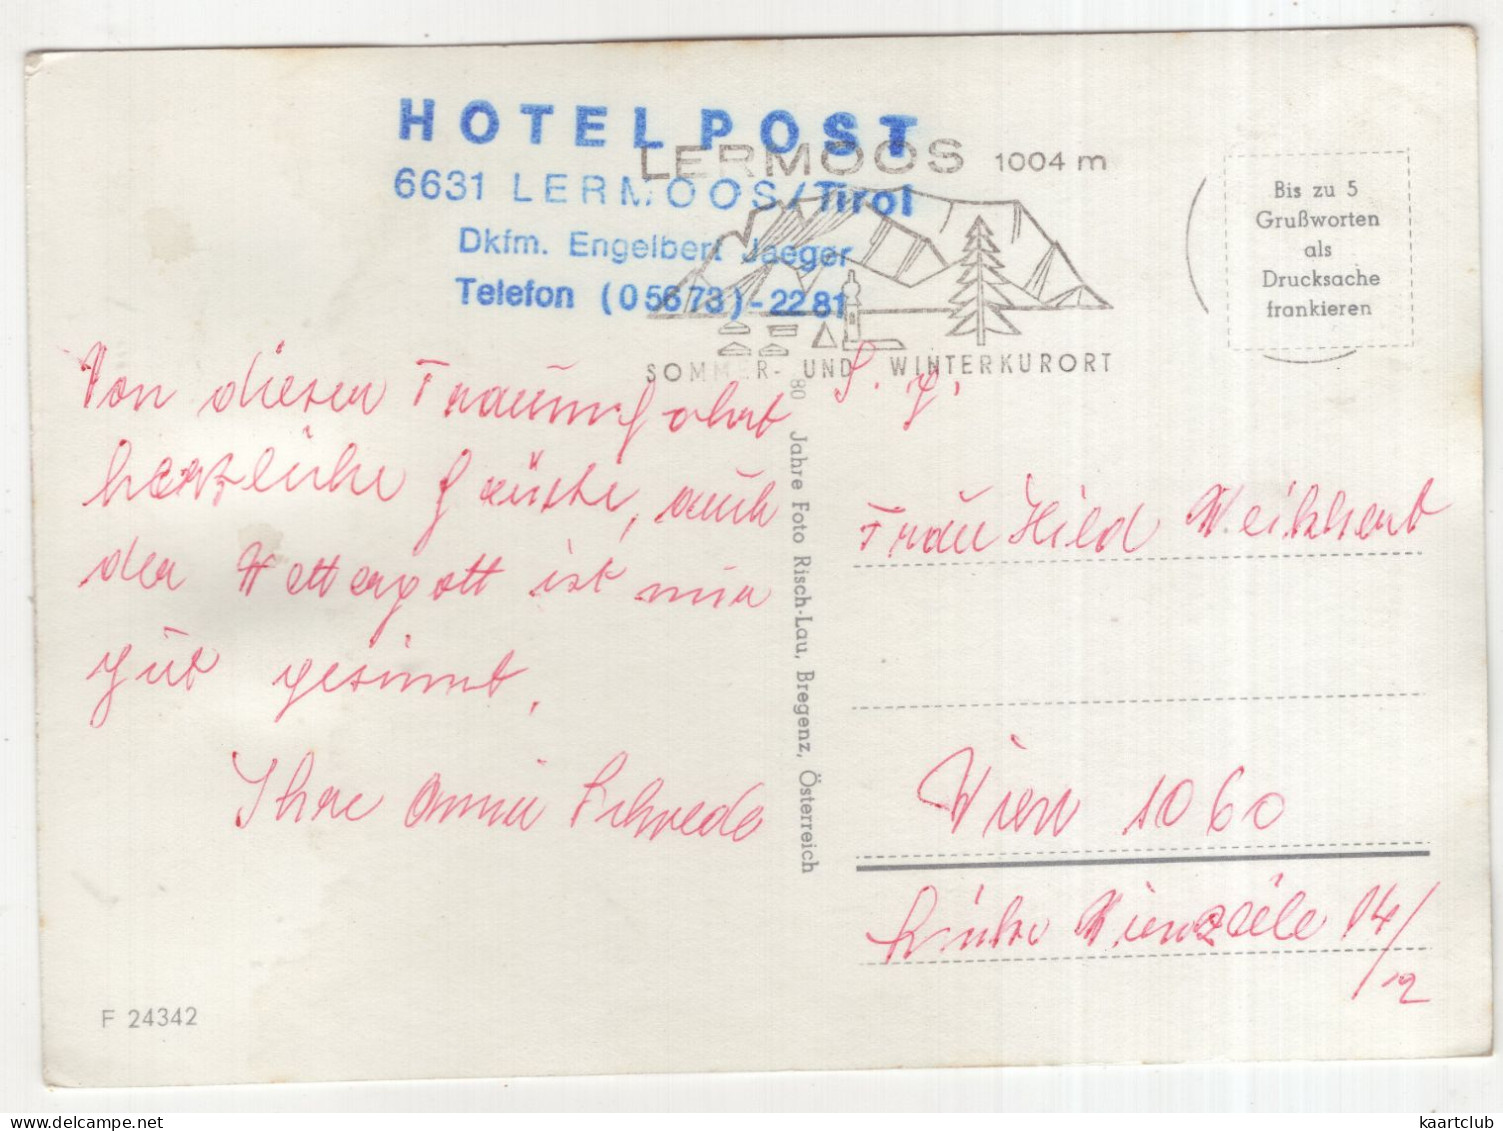 HOTEL POST
6631 LERMOOS/Tirol
Dkfm. Engelbert Jaeger
Telefon (05673)-2281
LERMOOS 1004 m
SOMMER- UND WINTERKURORT
Bis zu 5
Grußworten
als
Drucksache
frankieren
Von dieser Traumfahrt
herzliche Grüsse, auch
der Wettergott ist mir
gut gesinnt.
Ihre Anni
80 Jahre Foto Risch-Lau, Bregenz, Österreich
S. g.
Frau Hild
Wien 1060
Linke Wienzeile 14/
2
F 24342
kaartclub